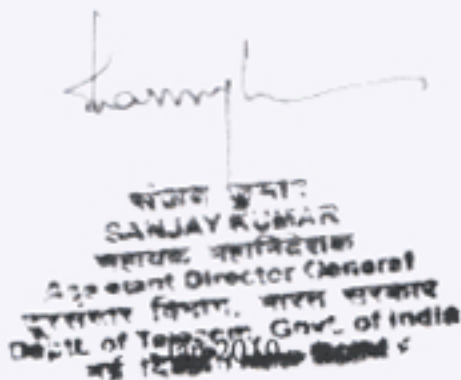 संजय कुमार
SANJAY KUMAR
सहायक महानिदेशक
Assistant Director General
दूरसंचार विभाग, भारत सरकार
Deptt. of Telecom, Govt. of India
नई